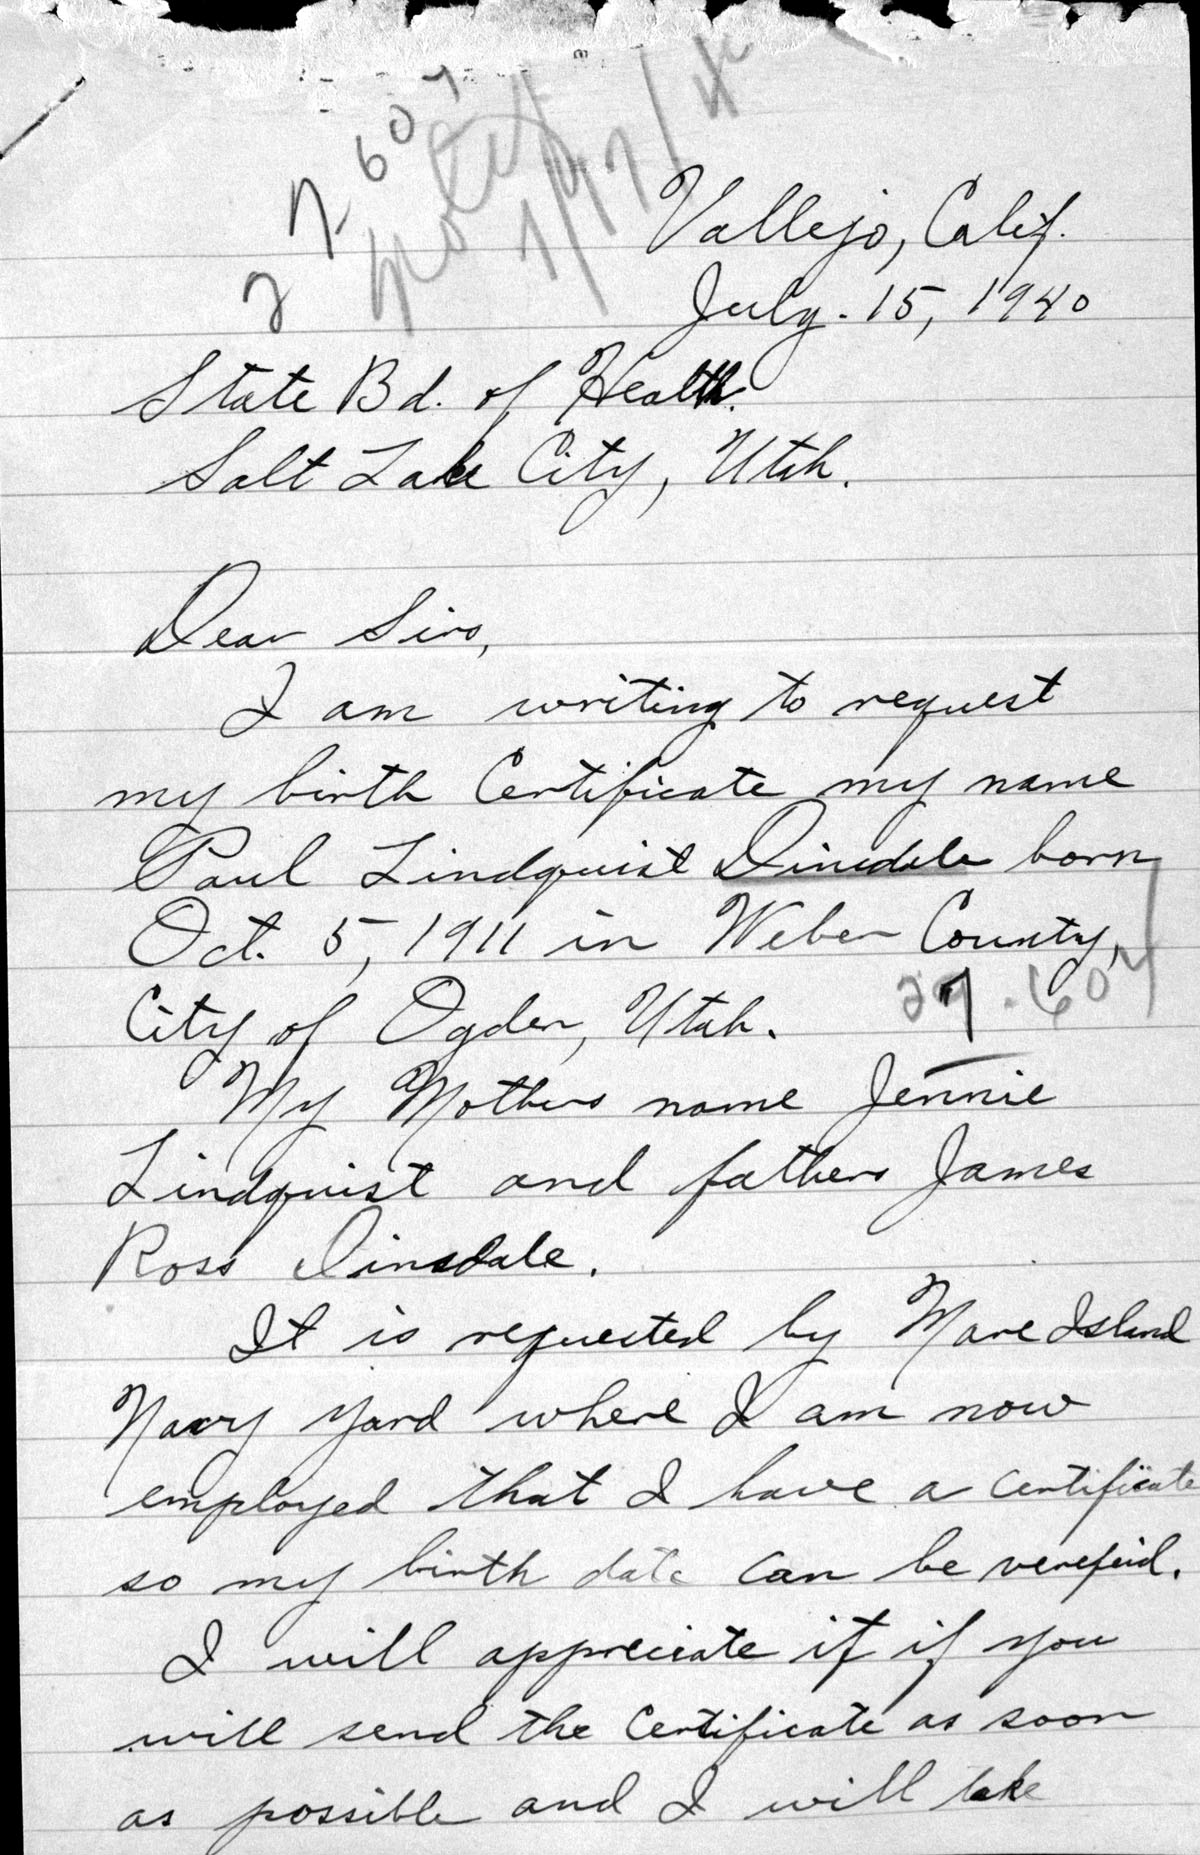 27607
Vallejo, Calif.
July. 15, 1940
State Bd. of Health.
Salt Lake City, Utah.
Dear Sirs,
I am writing to request
my birth Certificate my name
Paul Lindquist Dinsdale born
Oct. 5, 1911 in Weber County,
City of Ogden, Utah.
My Mothers name Jennie
Lindquist and fathers James
Ross Dinsdale.
It is requested by Mare Island
Navy Yard where I am now
employed that I have a certificate
so my birth date can be verefeid.
I will appreciate it if you
will send the Certificate as soon
as possible and I will take